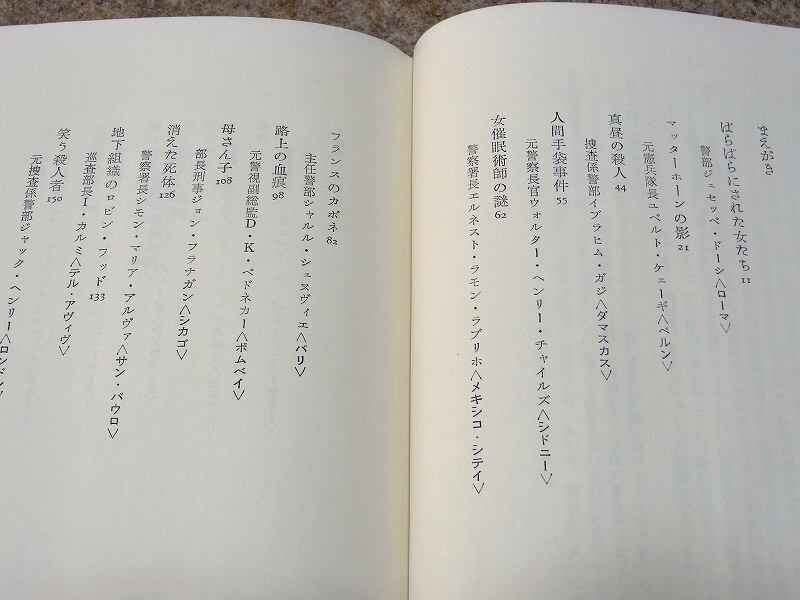 まえがき
ばらばらにされた女たち 11
警部ジュセッペ・ドーシ〈ローマ〉
マッターホーンの影 21
元憲兵隊長ユベルト・ケェーギ〈ベルン〉
真昼の殺人 44
捜査係警部イブラヒム・ガジ〈ダマスカス〉
人間手袋事件 55
元警察長官ウォルター・ヘンリー・チャイルズ〈シドニー〉
女催眠術師の謎 62
警察署長エルネスト・ラモン・ラブリホ〈メキシコ・シテイ〉
フランスのカポネ 82
主任警部シャルル・シュヌヴィエ〈パリ〉
路上の血痕 98
元警視副総監D・K・ペドネカー〈ボムベイ〉
母さん子 108
部長刑事ジョン・フラナガン〈シカゴ〉
消えた死体 126
警察署長シモン・マリア・アルヴァ〈サン・パウロ〉
地下組織のロビン・フッド 133
巡査部長I・カルミ〈テル・アヴィヴ〉
笑う殺人者 150
元捜査係警部ジャック・ヘンリー〈ロンドン〉